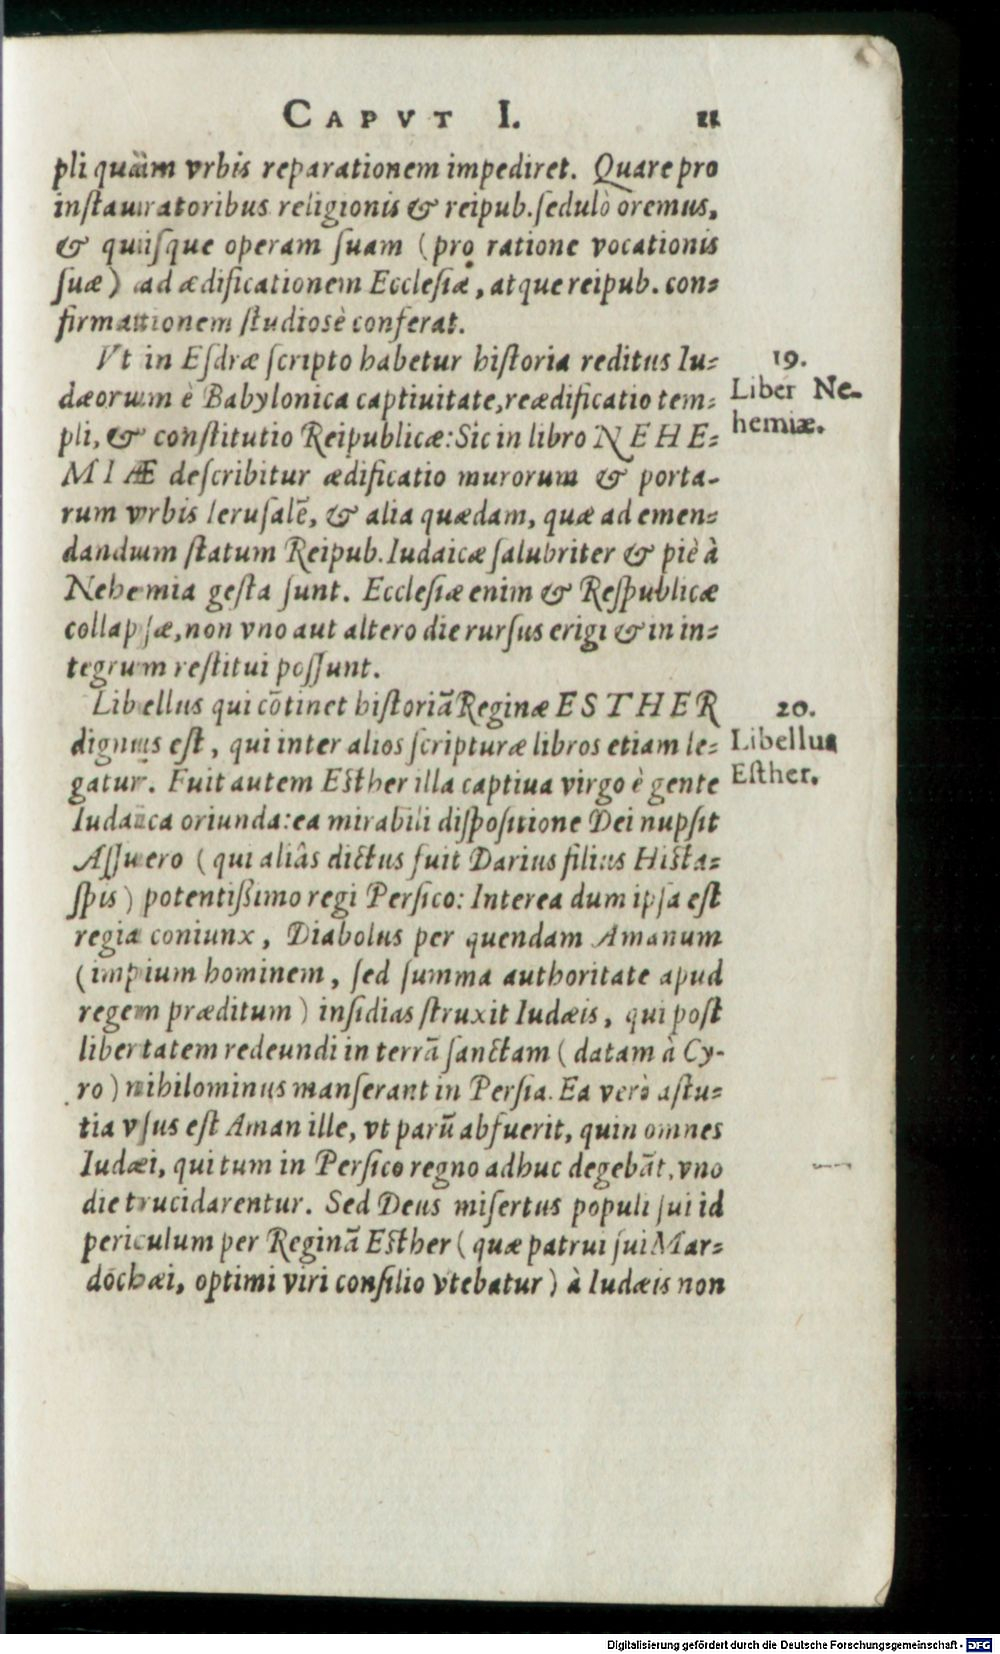 CAPVT I. 11
pli quàm vrbis reparationem impediret. Quare pro
instauratoribus religionis & reipub. sedulò oremus,
& quisque operam suam (pro ratione vocationis
suæ) ad ædificationem Ecclesiæ, atque reipub. con=
firmationem studiosè conferat.
Vt in Esdræ scripto habetur historia reditus Iu=
dæorum è Babylonica captiuitate, reædificatio tem=
pli, & constitutio Reipublicæ: Sic in libro NEHE=
MIÆ describitur ædificatio murorum & porta-
rum vrbis Ierusalẽ, & alia quædam, quæ ad emen=
dandum statum Reipub. Iudaicæ salubriter & piè à
Nehemia gesta sunt. Ecclesiæ enim & Respublicæ
collapsæ, non vno aut altero die rursus erigi & in in=
tegrum restitui possunt.
19.
Liber Ne-
hemiæ.
Libellus qui cõtinet historiã Reginæ ESTHER
dignus est, qui inter alios scripturæ libros etiam le=
gatur. Fuit autem Esther illa captiua virgo è gente
Iudaica oriunda: ea mirabili dispositione Dei nupsit
Assuero (qui aliâs dictus fuit Darius filius Hista=
spis) potentißimo regi Persico: Interea dum ipsa est
regia coniunx, Diabolus per quendam Amanum
(impium hominem, sed summa authoritate apud
regem præditum) insidias struxit Iudæis, qui post
libertatem redeundi in terrã sanctam (datam à Cy-
ro) nihilominus manserant in Persia. Ea verò astu=
tia vsus est Aman ille, vt parũ abfuerit, quin omnes
Iudæi, qui tum in Persico regno adhuc degebãt, vno
die trucidarentur. Sed Deus misertus populi sui id
periculum per Reginã Esther (quæ patrui sui Mar=
dochæi, optimi viri consilio vtebatur) à Iudæis non
20.
Libellus
Esther.
Digitalisierung gefördert durch die Deutsche Forschungsgemeinschaft - DFG